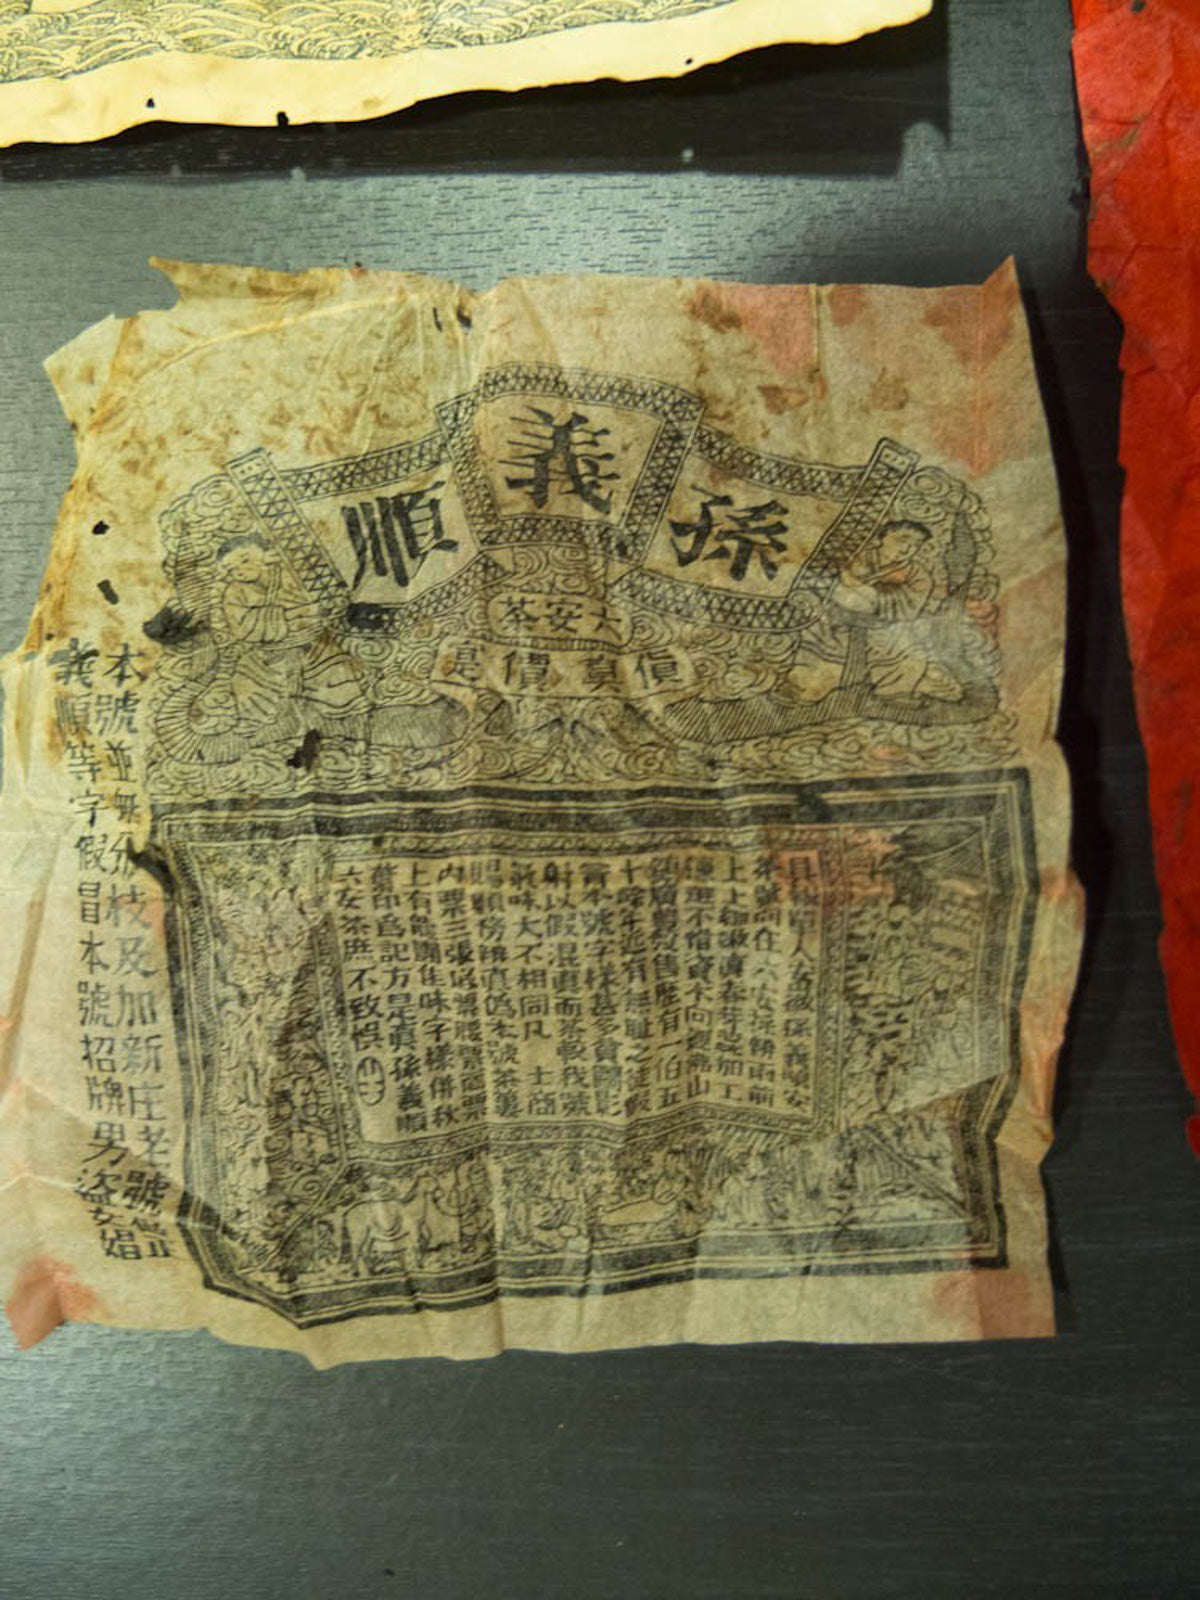 孫義順
六安茶
貨真價是
茶號向在六安採辦雨前
上上細嫩真春芽蕊加工
揀選不惜資本向運佛山
鎮廣幫發售歷有一佰五
十餘年近有無恥之徒假
冒本號字樣甚多貪圖影
射以假混真而茶較我號
氣味大不相同凡 士商
賜顧務辨真偽本號茶簍
內票三張底票腰票面票
上有龍團佳味字樣併秋
葉印為記方是真孫義順
六安茶庶不致悞
本號並無分枝及加新庄老號
義順等字假冒本號招牌男盜女娼